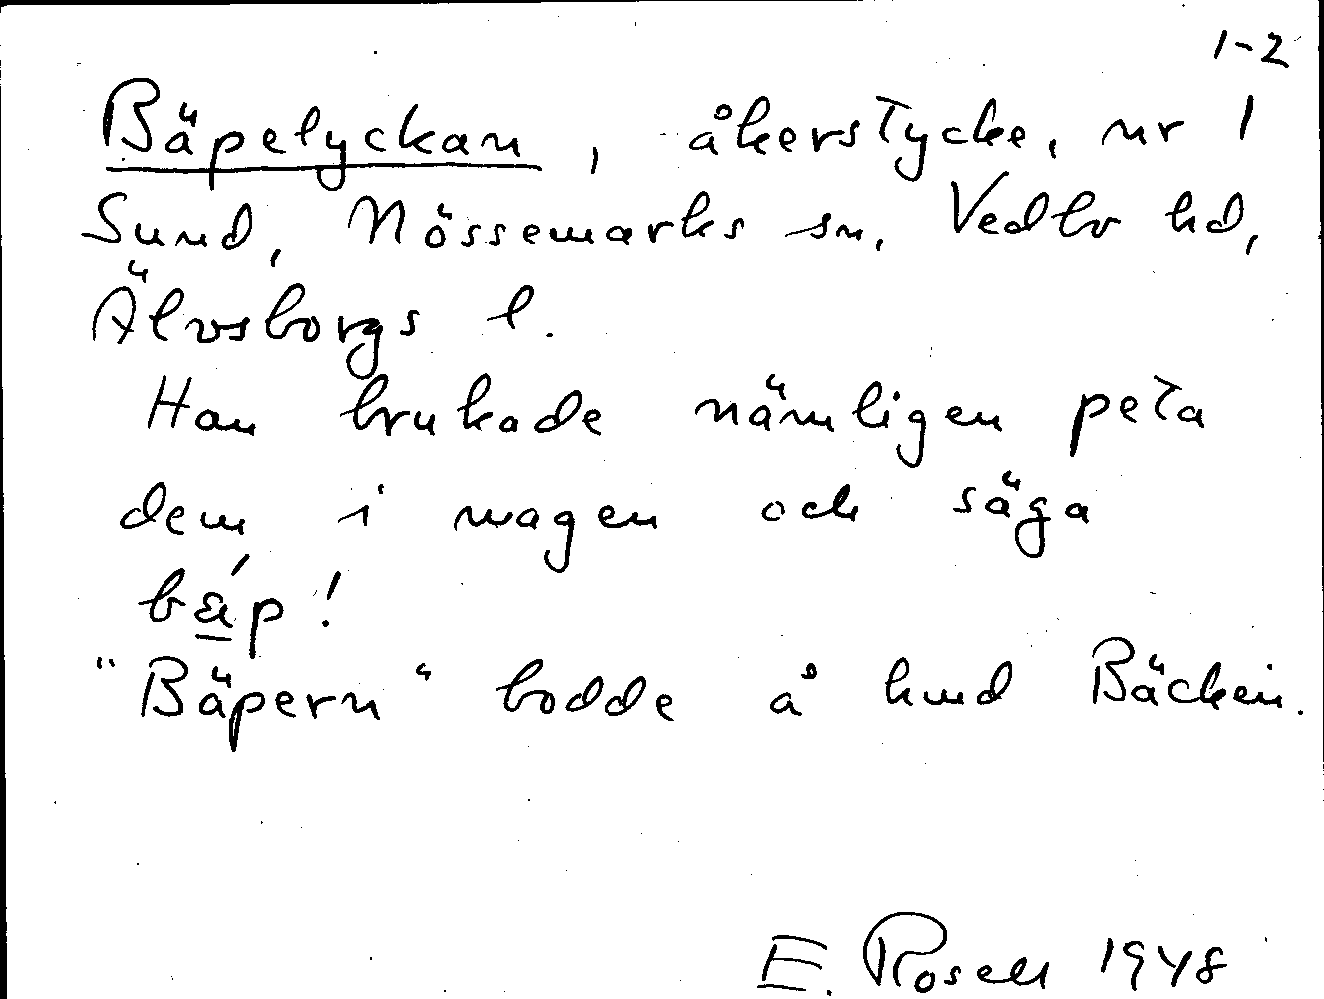 1-2
Bäpelyckan, åkerstycke, nr 1
Sund, Nössemarks sn, Vedbo hd,
Älvsborgs l.
Han brukade nämligen peta
dem i magen och säga
bä́p!
"Bäpern" bodde å hmd Bäcken.
E. Rosell 1948